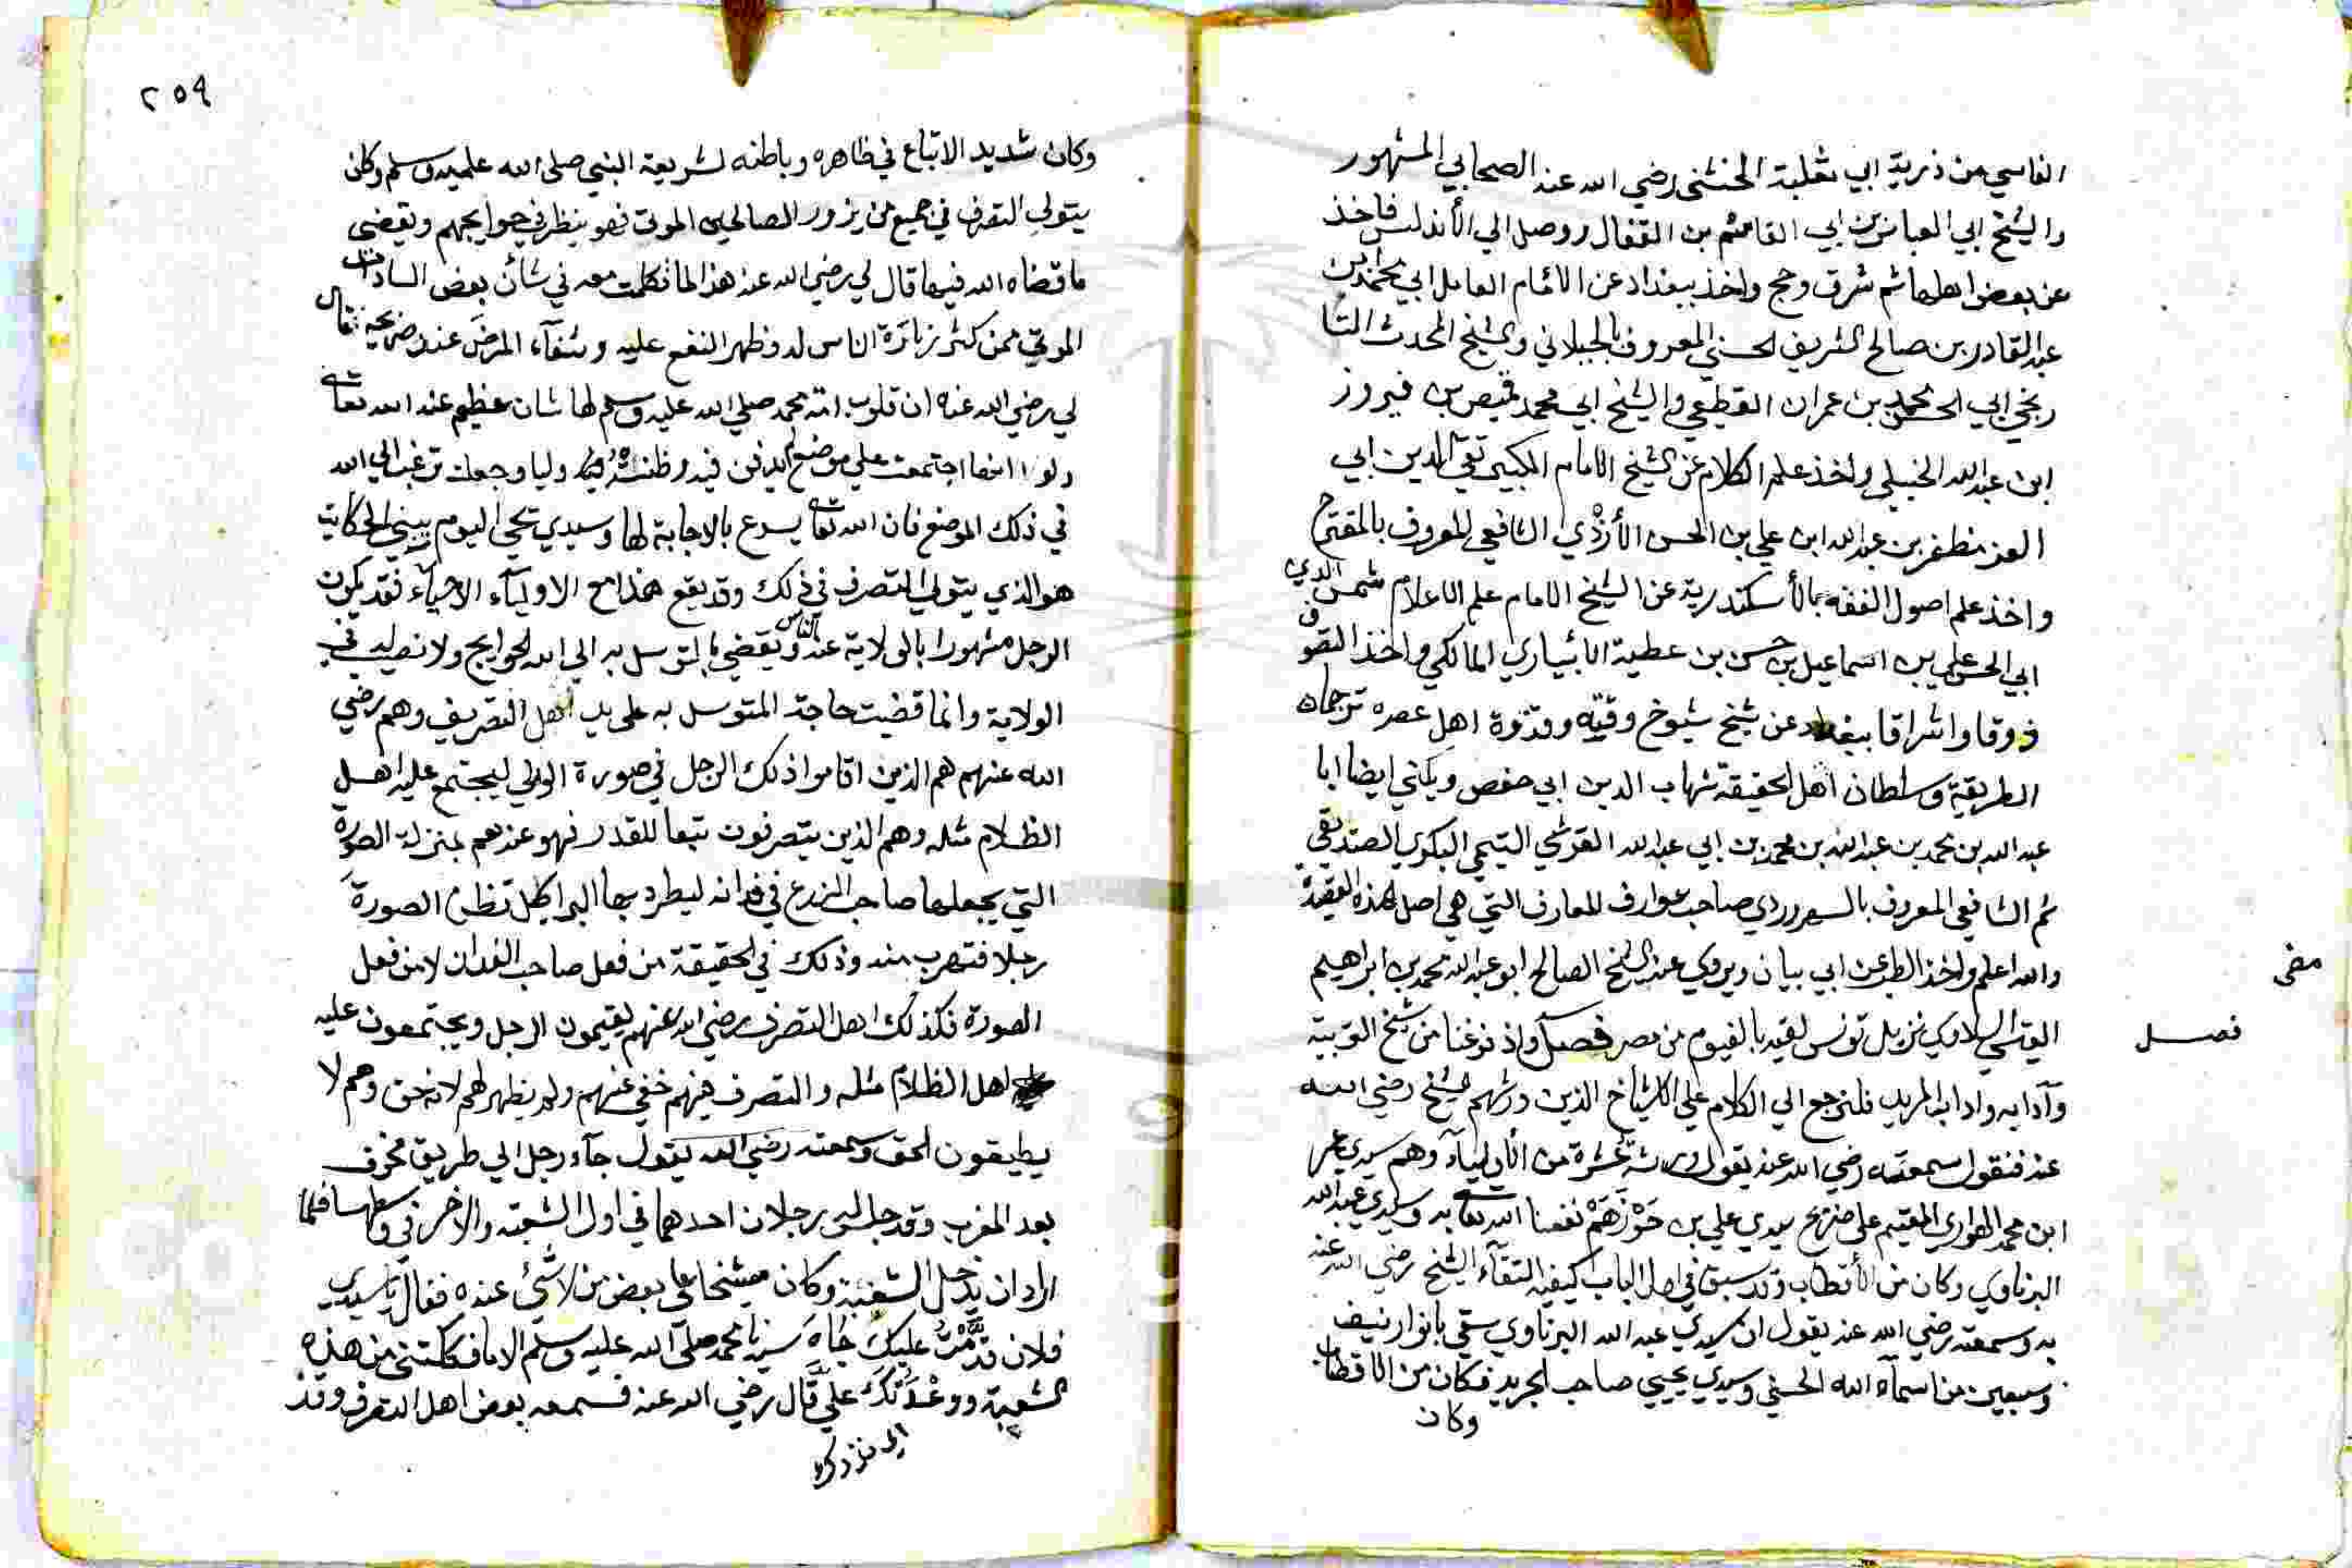 الفاسي من ذرية ابي ثعلبة الخشني رضي الله عنه الصحابي المشهور
والشيخ ابي العباس بن ابي القاسم بن القفال ووصل الي الأندلس فاخذ
عن بعض اهلها ثم شرق وحج واخذ ببغداد عن الامام العامل ابي محمد ابن
عبد القادر بن صالح الشريف الحسني المعروف بالجيلاني والشيخ المحدث التا
ريخي ابي الحسن محمد بن عمران القطيعي والشيخ ابي محمد قيصر بن فيروز
ابن عبد الله الخبيلي واخذ علم الكلام عن الشيخ الامام الكبير تقي الدين ابي
العز مظفر بن عبد الله ابن علي بن الحسن الأزدي الشافعي المعروف بالمقترح
واخذ علم اصول الفقه بالأسكندرية عن الشيخ الامام علم الاعلام شمس الدين
ابي الحسن علي بن اسماعيل بن حسن بن عطية الابياري المالكي واخذ التصوف
ذوقا واشراقا ببغداد عن شيخ شيوخ وقته وقدوة اهل عصره ترجمان
الطريقة وسلطان اهل الحقيقة شهاب الدين ابي حفص ويكني ايضا ابا
عبد الله بن محمد بن عبد الله بن محمد بن ابي عبد الله القرشي التيمي البكري الصديقي
ثم الشافعي المعروف بالسهروردي صاحب عوارف المعارف التي هي اصل هذه القصيدة
والله اعلم واخذ الطب عن ابي بيان ويروي عنه الشيخ الصالح ابو عبد الله محمد بن ابراهيم
القيسي السلاوي نزيل تونس لقيه بالفيوم من مصر فصل واذ فرغنا من شيخ التربية
فصل
وآدابه واداب المريد فلنرجع الي الكلام علي الاشياخ الذين ورثهم الشيخ رضي الله
عنه فنقول سمعته رضي الله عنه يقول ورثت عشرة من الأولياء وهم سيدي عمر
ابن محمد الهواري المقيم علي ضريح سيدي علي بن حرزهم نفعنا الله تعالى به وسيدي عبد الله
البرناوي وكان من الأقطاب وقد سبق في اول الباب كيفية التقآء الشيخ رضي الله عنه
به وسمعته رضي الله عنه يقول ان سيدي عبد الله البرناوي سقي بانوار نيف
وسبعين من اسمآء الله الحسني وسيدي يحيي صاحب الجريد فكان من الاقطاب
وكان
٢٥٩
وكان شديد الاتباع في ظاهره وباطنه لشريعة النبي صلى الله عليه وسلم وكان
يتولي التصرف في جميع من يزور الصالحين الموتي فهو ينظر في حوايجهم ويقضي
ما قضاه الله فيها قال لي رضي الله عنه هذا لما تكلمت معه في شأن بعض السادات
الموتي ممن كثر زيارة الناس له وظهر النفع عليه وشفآء المرضى عند ضريحه فقال
لي رضي الله عنه ان قلوب امة محمد صلي الله عليه وسلم لها شان عظيم عند الله تعالى
ولو انها اجتمعت علي موضع لم يدفن فيه وظنت فيه وليا وجعلت ترغب الي الله
في ذلك الموضع فان الله تعالى يسرع بالاجابة لها وسيدي يحيى اليوم يعني الحكاية
هو الذي يتولي التصرف في ذلك وقد يقع هذا مع الاوليآء الاحيآء فقد يكون
الرجل مشهورا بالولاية عند الناس وتقضي بالتوسل به الي الله الحوايج ولا نصيب له في
الولاية وانما قضيت حاجة المتوسل به على يد اهل التصريف وهم رضي
الله عنهم هم الذين اقاموا ذلك الرجل في صورة الولي ليجتمع عليه اهل
الظلام مثله وهم الذين يتصرفون تبعا للقدر فهو عندهم بمنزلة الصورة
التي يجعلها صاحب الزرع في فدانه ليطرد بها البراطيل تظن الصورة
رجلا فتهرب منه وذلك في الحقيقة من فعل صاحب الفدان لا من فعل
الصورة فكذلك اهل التصرف رضي الله عنهم يقيمون الرجل ويجتمعون عليه
اهل الظلام مثله والتصرف فيهم خفي عنهم ولم يظهر لهم لانه حق وهم لا
يطيقون الحق وسمعته رضي الله يقول جآء رجل الي طريق مخوف
بعد المغرب وقد جلس رجلان احدهما في اول الشعبة والاخر في وسطها فلما
اراد ان يدخل الشعبة وكان شيخا على بعض من لا شئ عنده فقال يا سيدي
فلان قدمت عليك جاه سيدنا محمد صلى الله عليه وسلم الا ما فككتني من هذه
الشعبة ووعدتك علي قال رضي الله عنه فسمعه بعض اهل التصرف وقد